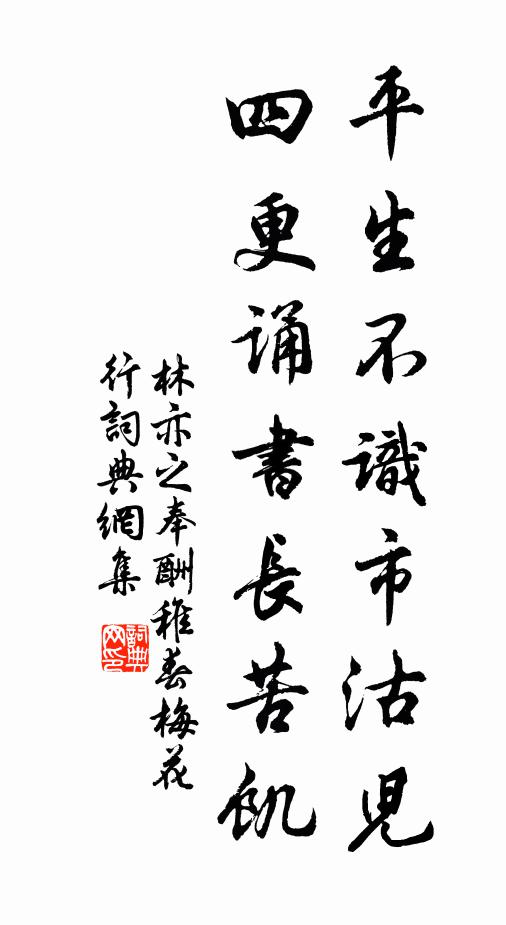 平生不識市沽兒
四更誦書長苦飢
林亦之奉酬稚春梅花
行詞典網集
詞典网印